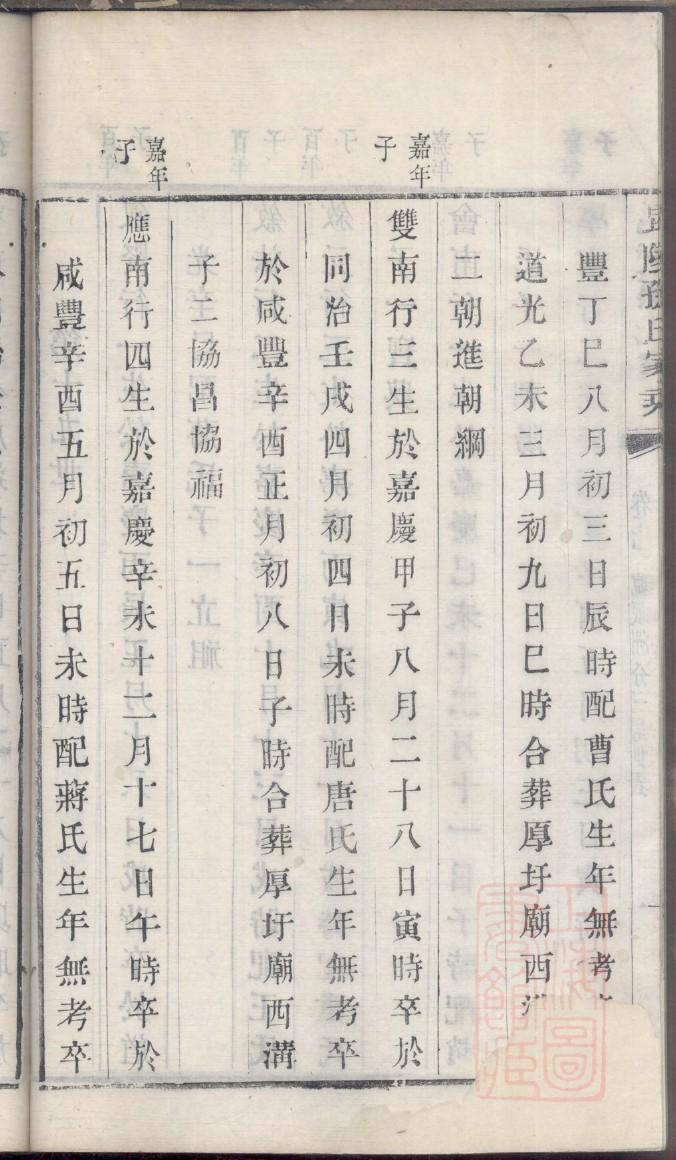 豐丁巳八月初三日辰時配曹氏生年無考
道光乙未三月初九日巳時合葬厚圩廟西
二朝進朝綱
嘉年
子
雙南行三生於嘉慶甲子八月二十八日寅時卒於
同治壬戌四月初四日未時配唐氏生年無考卒
於咸豐辛酉正月初八日子時合葬厚圩廟西溝
子二協昌協福
嘉年
子
應南行四生於嘉慶辛未十二月十七日午時卒於
咸豐辛酉五月初五日未時配蔣氏生年無考卒